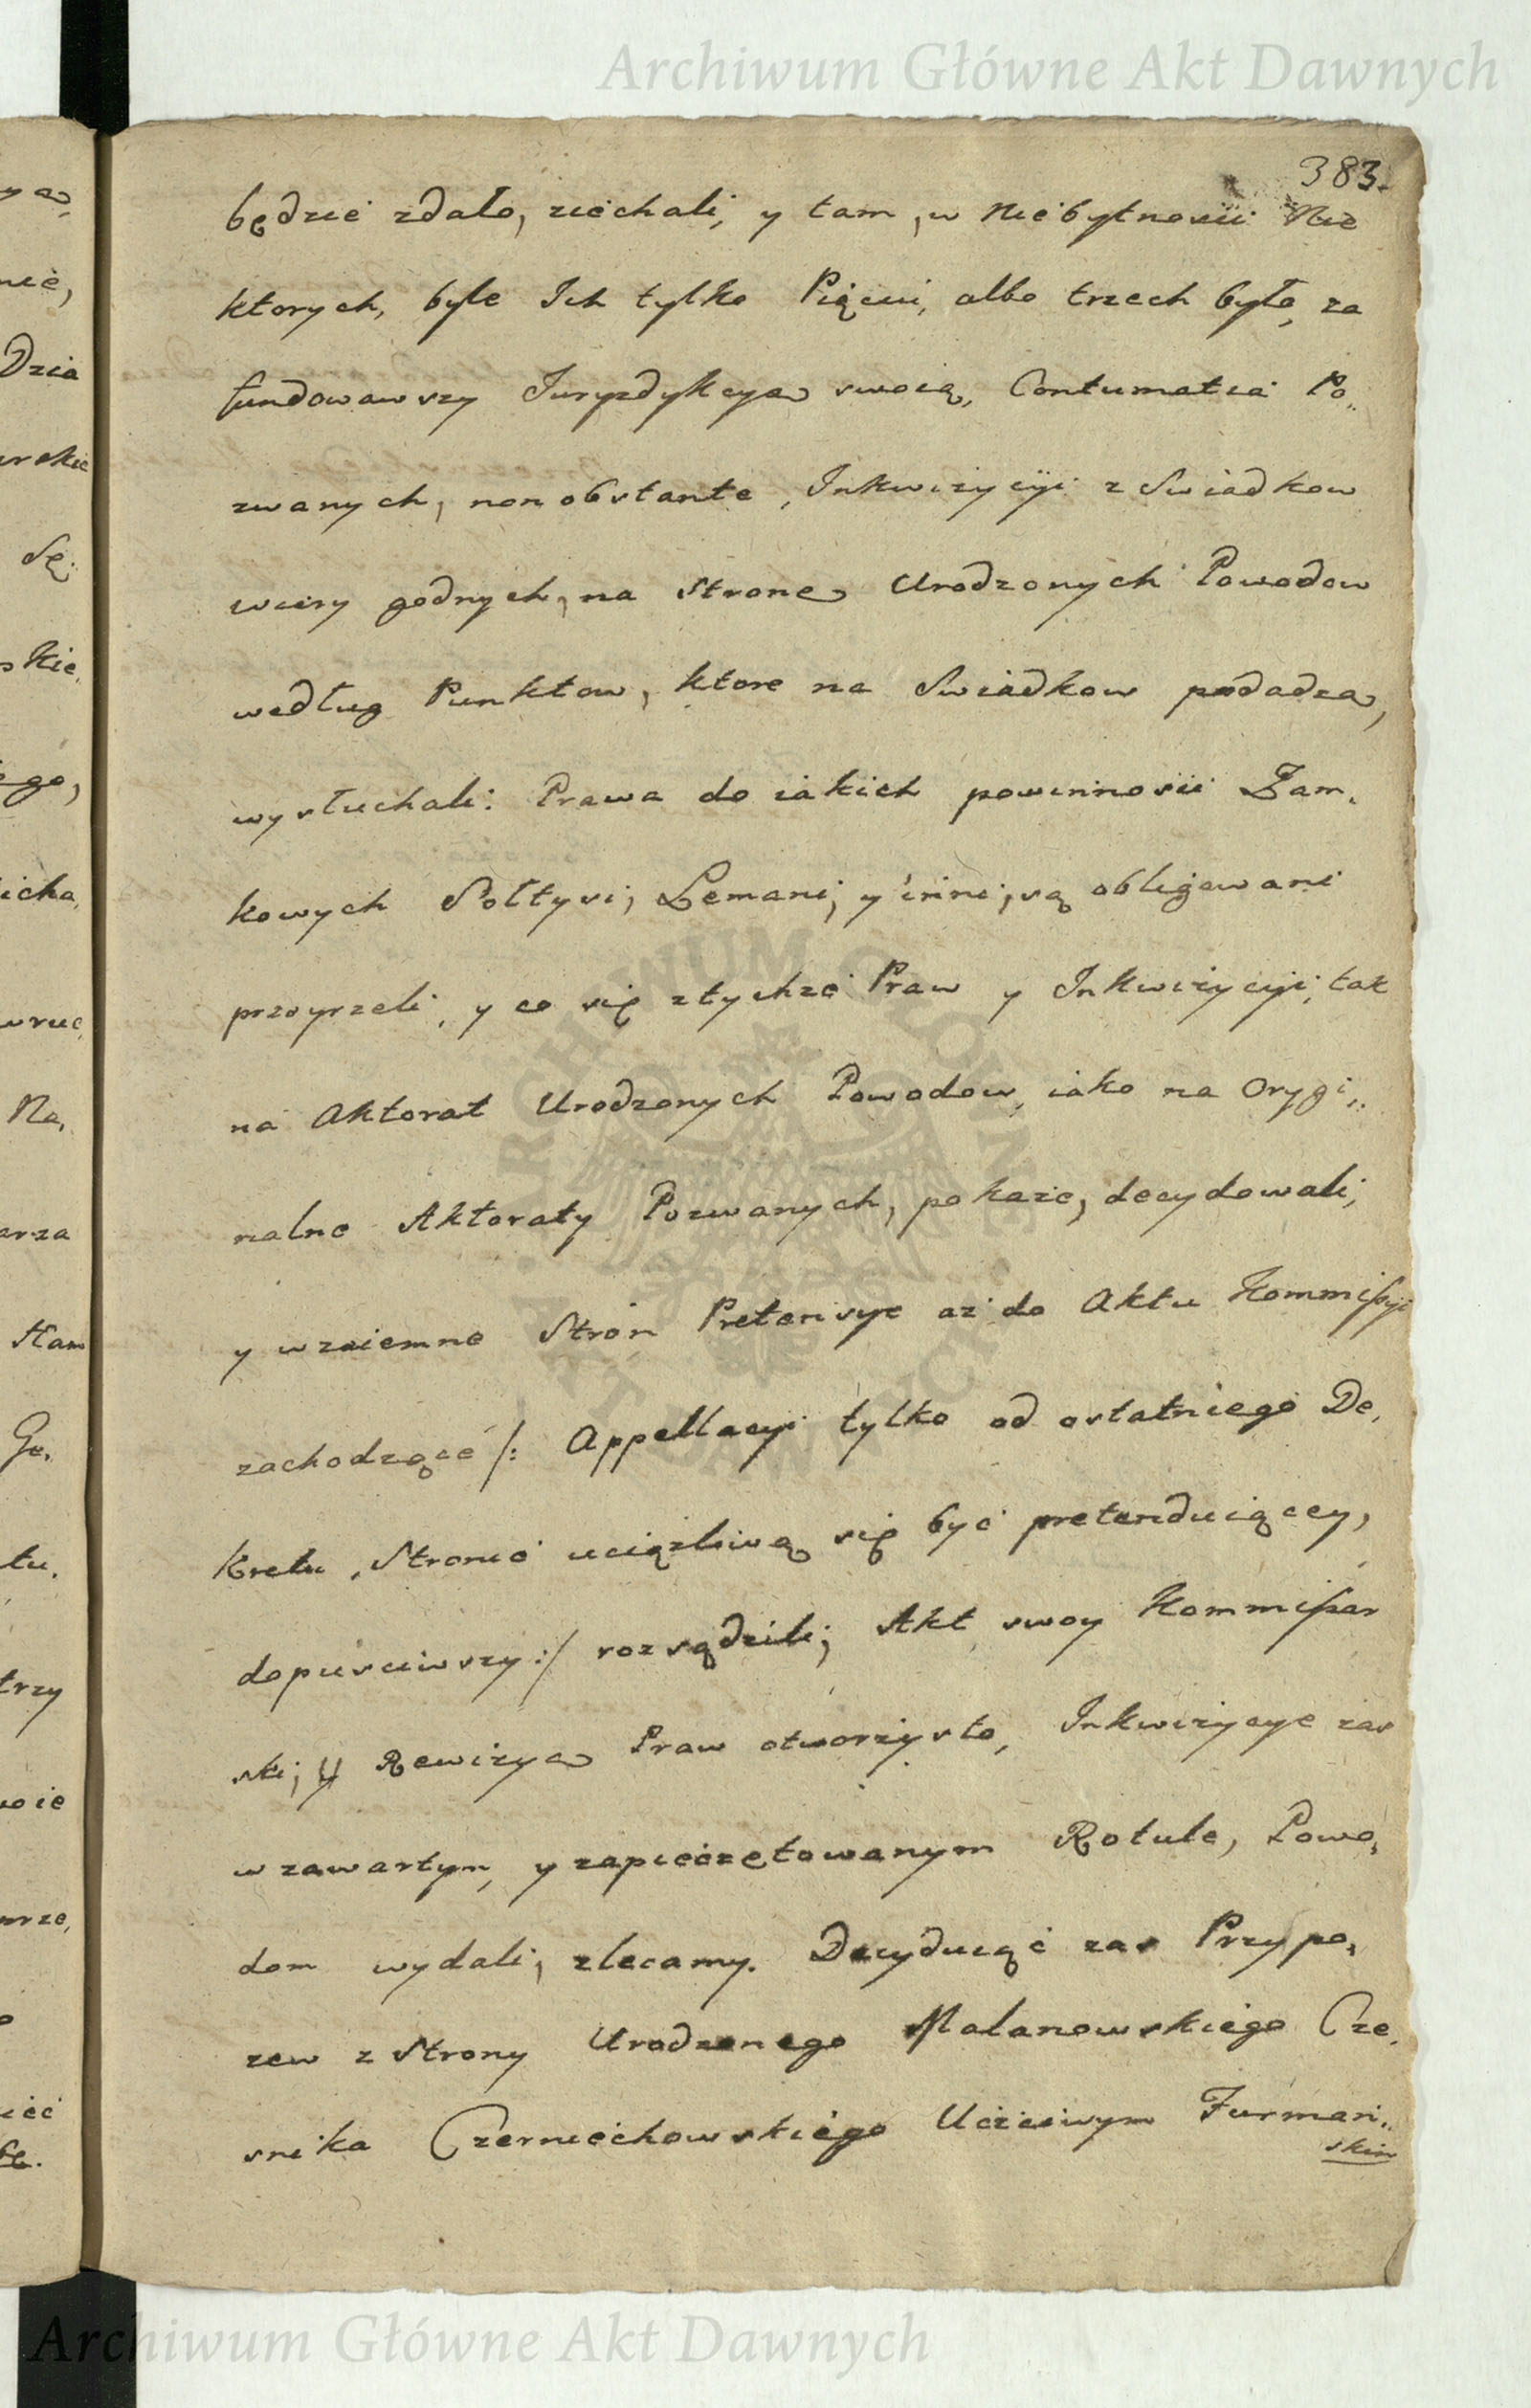 Archiwum Główne Akt Dawnych
383.
będzie zdało, ziechali, y tam, w Niebytnosci Nie
ktorych, byle Ich tylko Pięciu, albo trzech było, za
fundowawszy Juryzdykcyą swoią, Contumatia Po„
zwanych, non obstante, Inkwizycyi z Swiadkow
wiary godnych, na Stronę Urodzonych Powodow
według Punktow, ktore na Swiadkow podadzą,
wysłuchali: Prawa do iakich powinnosci Zam,
kowych Sołtysi, Lemani, y inni, są obligowani
przeyrzeli, y co się z tychze Praw y Inkwizycyi, tak
na Aktorat Urodzonych Powodow, iako na Orygi„
nalne Aktoraty Pozwanych, pokaze, decydowali,
y wzaiemne Stron Pretensye az do Aktu Kommissyi
zachodzące /: Appellacyi tylko od ostatniego De,
kretu, Stronie uciązliwą się być pretenduiącey,
dopusciwszy :/ rozsądzili; Akt swoy Kommissar
ski, y Rewizyą Praw otworzysto, Inkwizycye zas
w zawartym, y zapieczętowanym Rotule, Powo,
dom wydali, zlecamy. Decyduiąc zas Przypo,
zew z Strony Urodzonego Malanowskiego Cze,
snika Czerniechowskiego Uczciwym Furmań„
skim
ARCHIWUM GŁÓWNE AKT DAWNYCH
Archiwum Główne Akt Dawnych